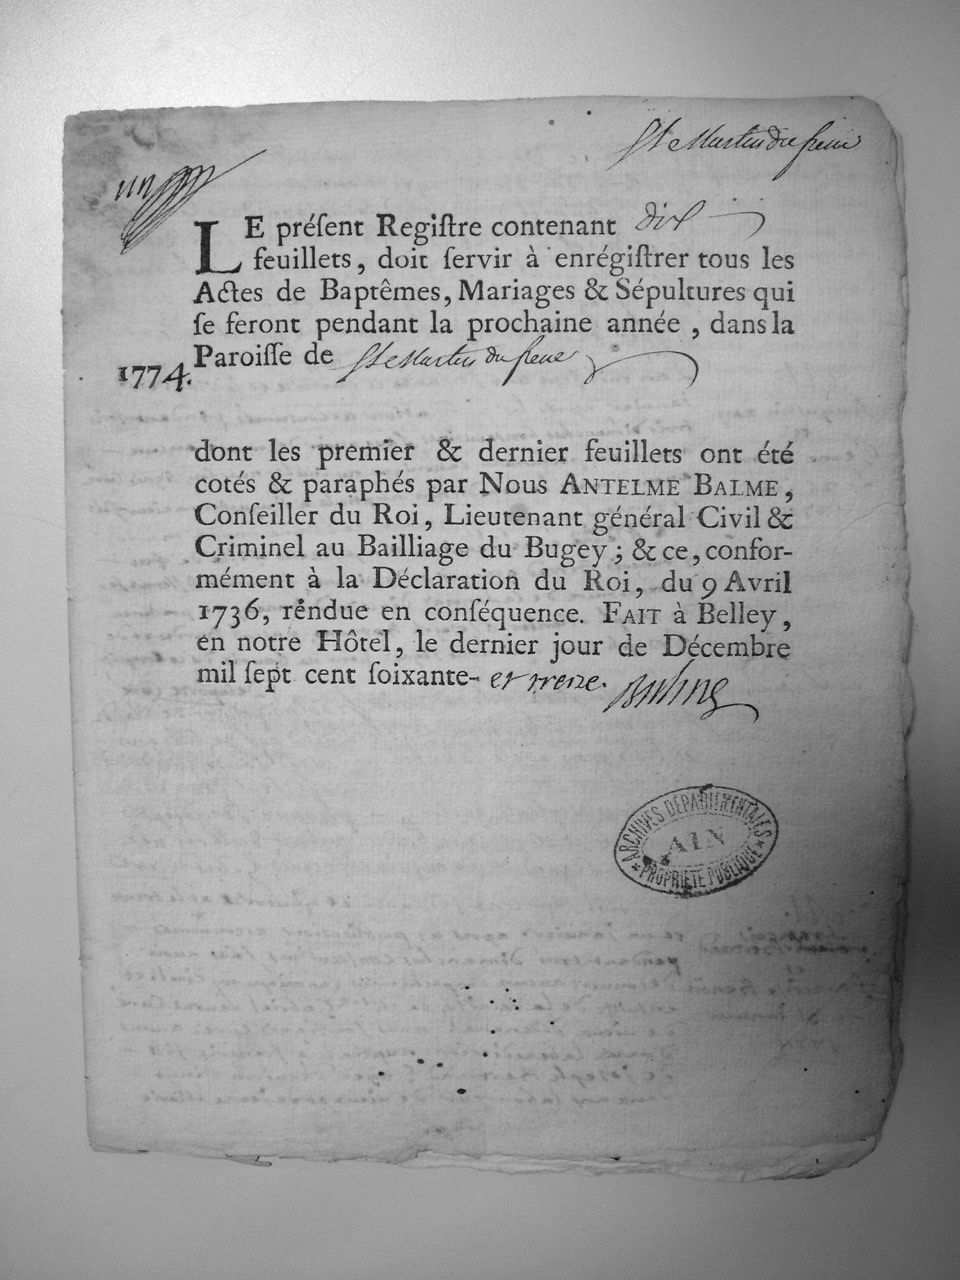 St Martin du frene
un
LE préſent Regiſtre contenant dix
feuillets, doit ſervir à enrégiſtrer tous les
Actes de Baptêmes, Mariages & Sépultures qui
ſe feront pendant la prochaine année, dans la
Paroiſſe de St Martin du frene
1774.
dont les premier & dernier feuillets ont été
cotés & paraphés par Nous ANTELME BALME,
Conſeiller du Roi, Lieutenant général Civil &
Criminel au Bailliage du Bugey; & ce, confor-
mément à la Déclaration du Roi, du 9 Avril
1736, rendue en conſéquence. FAIT à Belley,
en notre Hôtel, le dernier jour de Décembre
mil ſept cent ſoixante- et treze. Balme
ARCHIVES DÉPARTEMENTALES
AIN
PROPRIÉTÉ PUBLIQUE